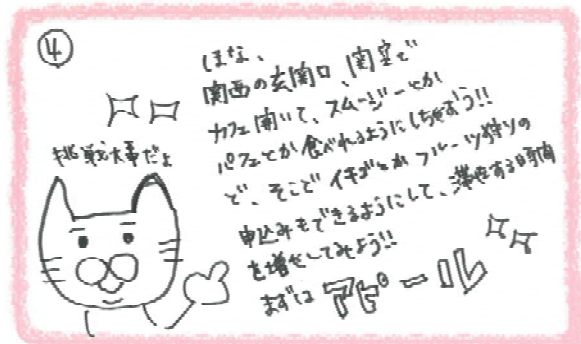 ④
ほな、
関西の玄関口、関空で
カフェ開いて、スムージーとか
パフェとか食べれるようにしちゃおう!!
で、そこでイチゴとかフルーツ狩りの
申込みもできるようにして、滞在する時間
を増やしてみよう!!
まずは アピール
挑戦大事だよ